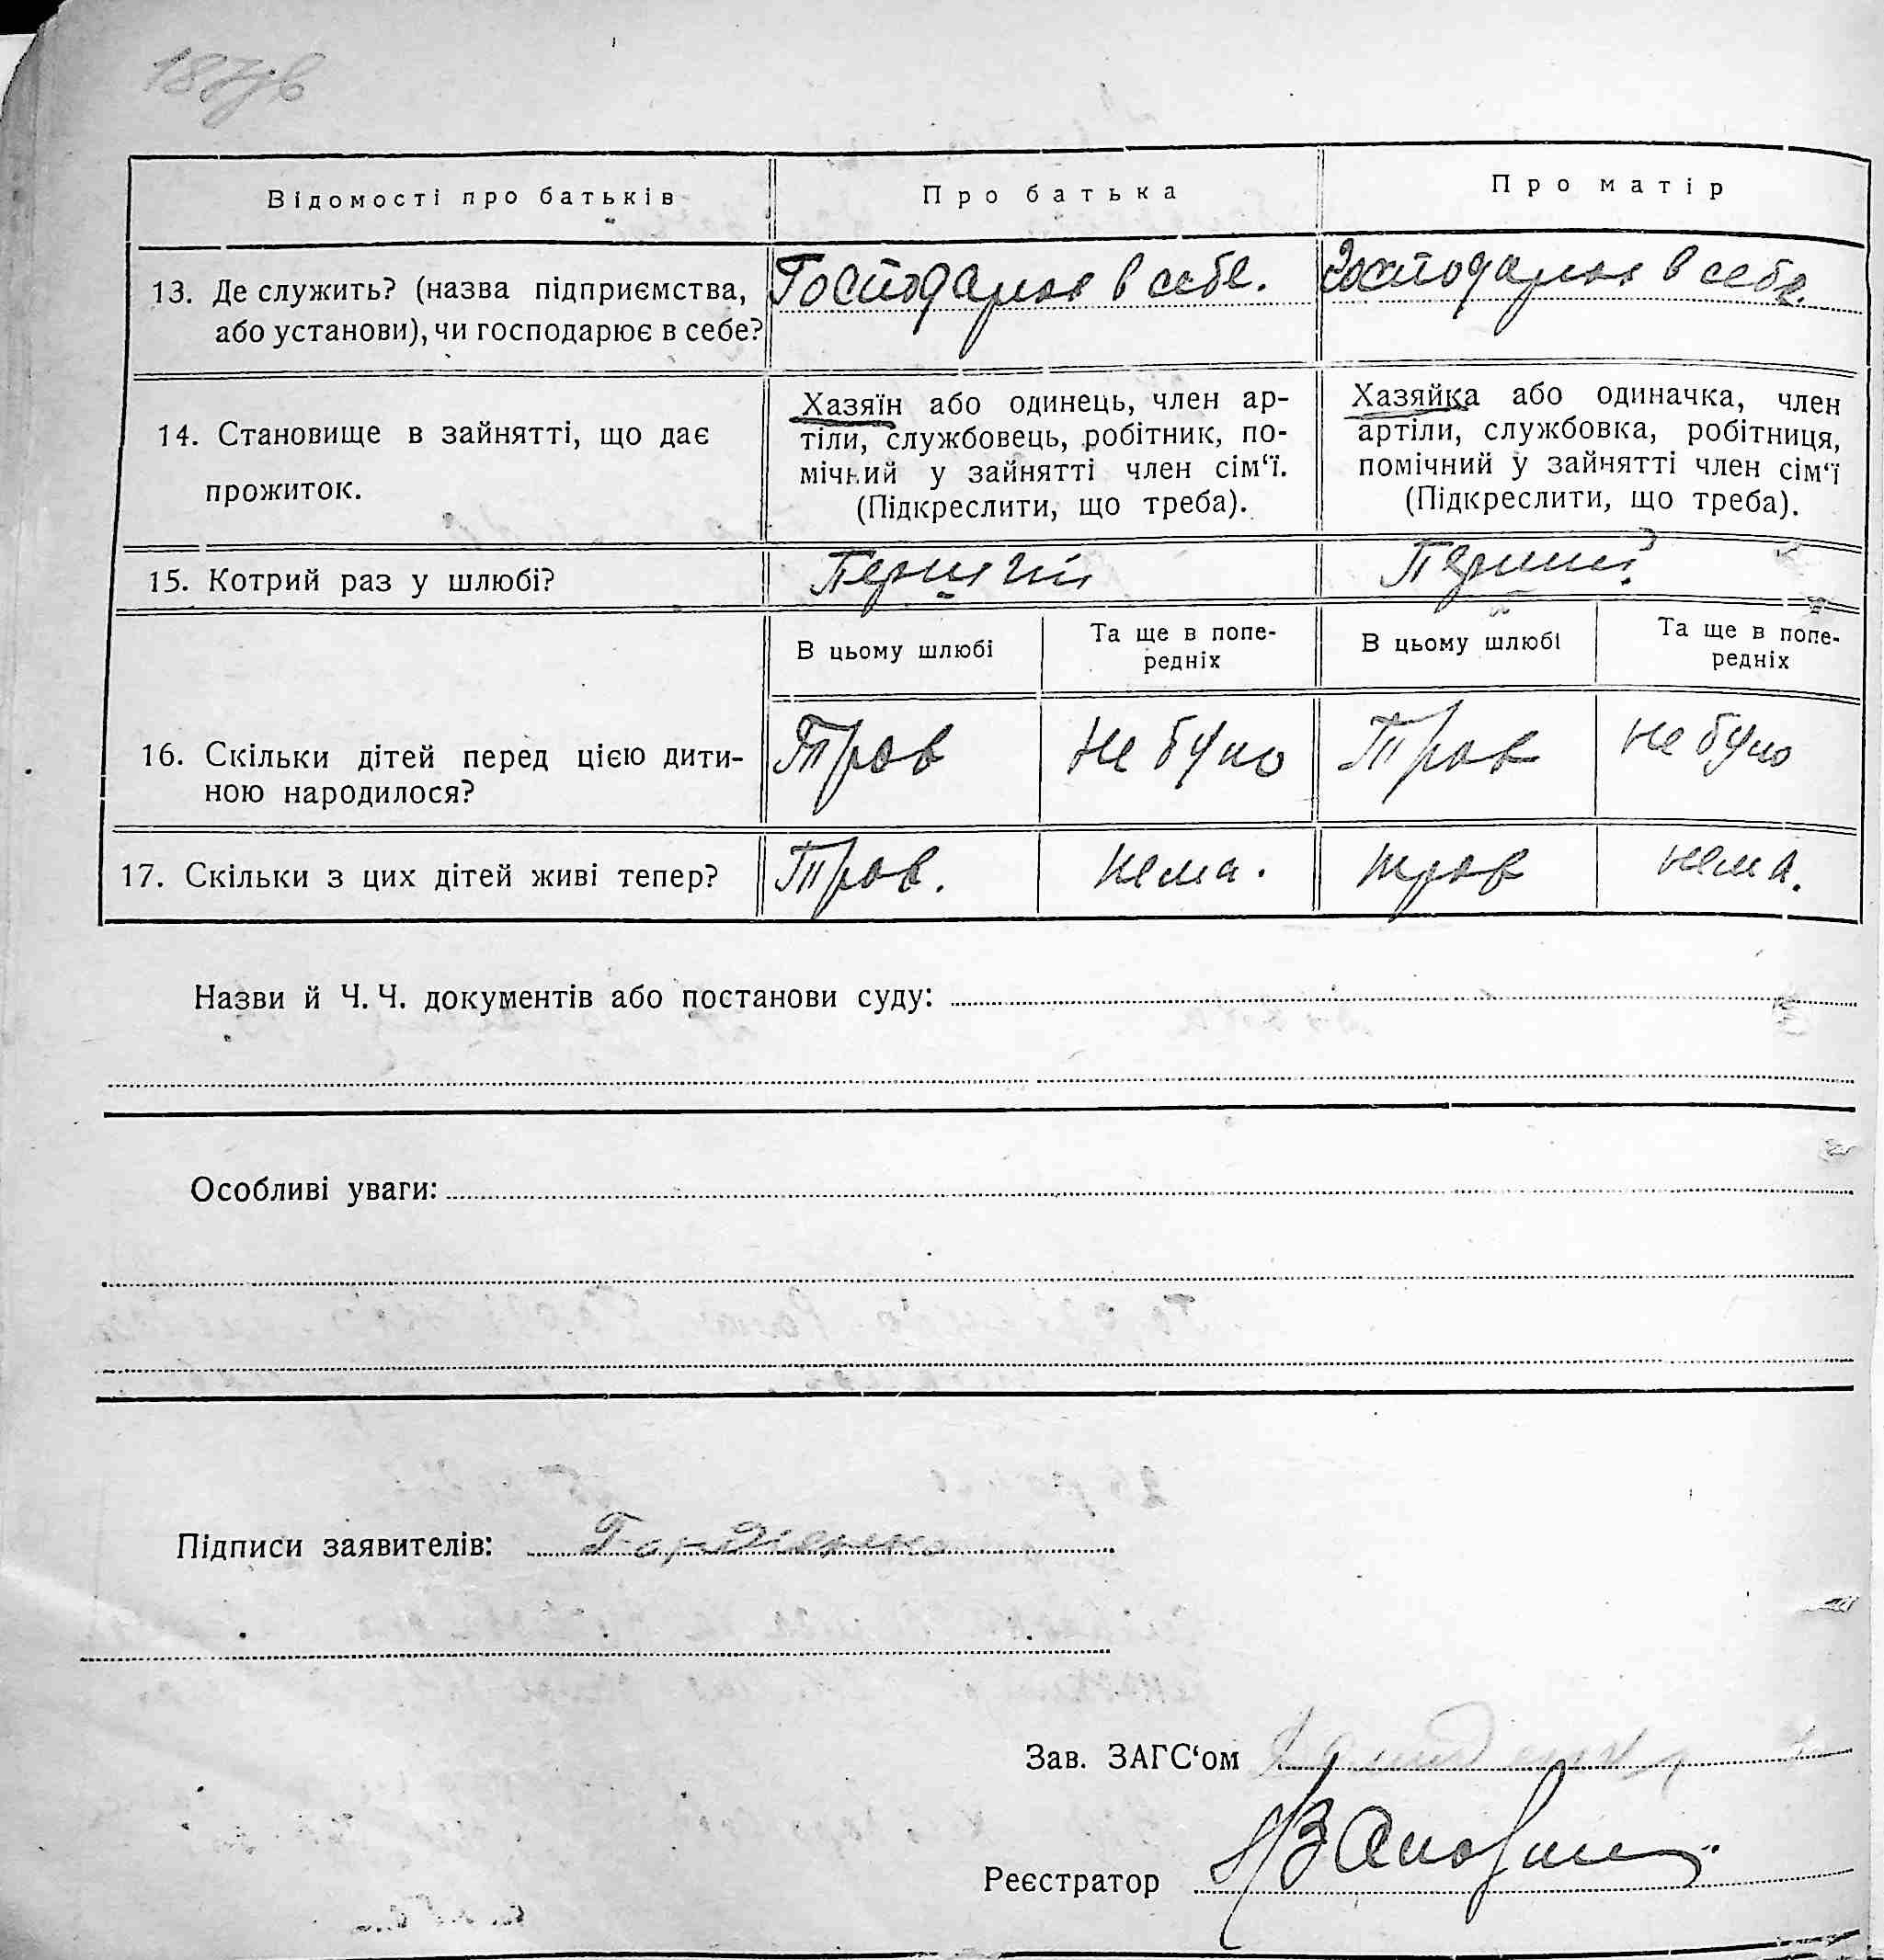 187зв
Відомості про батьків
Про батька
Про матір
13. Де служить? (назва підприємства,
або установи), чи господарює в себе?
Господарює в себе.
господарює в себе.
14. Становище в зайнятті, що дає
прожиток.
Хазяїн або одинець, член ар-
тіли, службовець, робітник, по-
мічний у зайнятті член сім‘ї.
(Підкреслити, що треба).
Хазяйка або одиначка, член
артіли, службовка, робітниця,
помічний у зайнятті член сім‘ї
(Підкреслити, що треба).
15. Котрий раз у шлюбі?
Перший
Перший
В цьому шлюбі
Та ще в попе-
редніх
В цьому шлюбі
Та ще в попе-
редніх
16. Скільки дітей перед цією дити-
ною народилося?
Троє
не було
Троє
не було
17. Скільки з цих дітей живі тепер?
Троє.
нема.
троє
нема.
Назви й Ч. Ч. документів або постанови суду:
Особливі уваги:
Підписи заявителів:
Зав. ЗАГС‘ом
Реєстратор